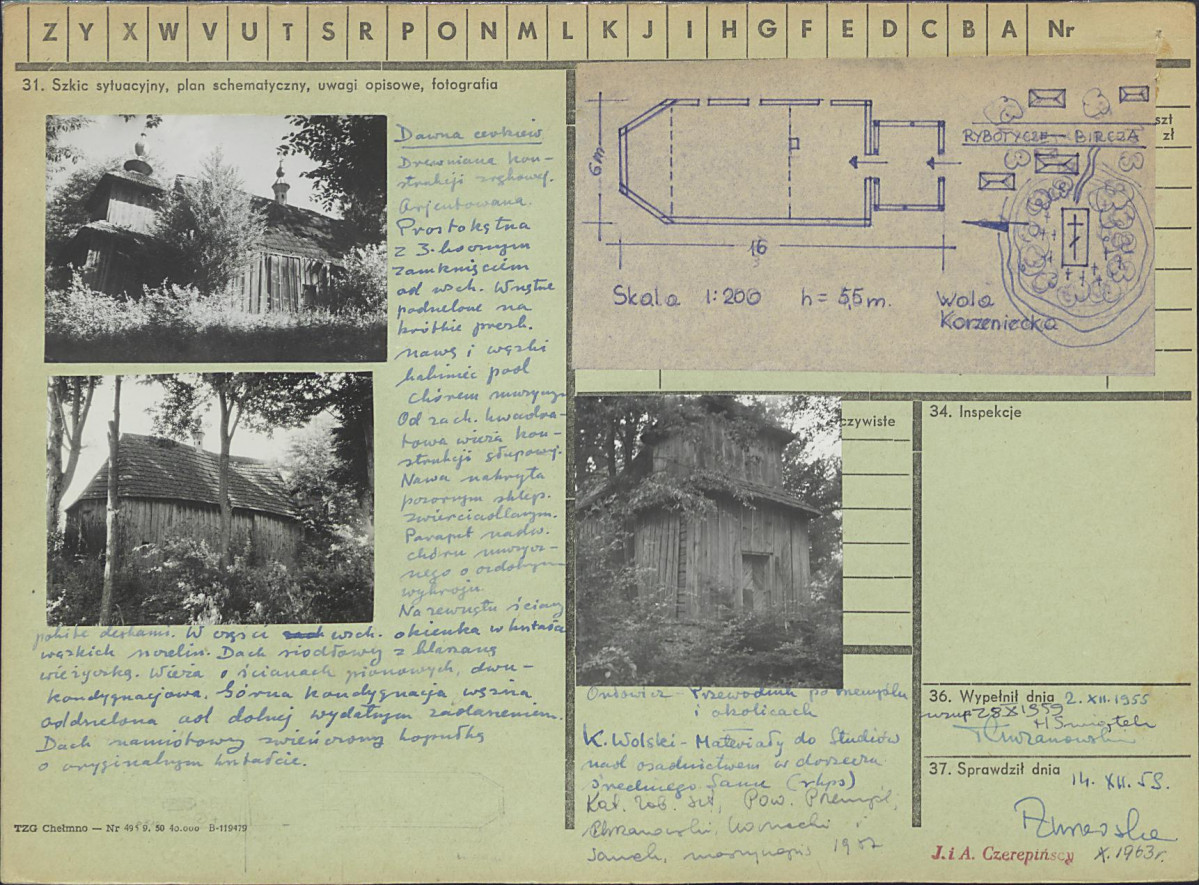 Z Y X W V U T S R P O N M L K J I H G F E D C B A Nr
31. Szkic sytuacyjny, plan schematyczny, uwagi opisowe, fotografia
Dawna cerkiew
Drewniana kon-
strukcji zrębowej.
Orientowana.
Prostokątna
z 3-bocznym
zamknięciem
od wsch. Wnętrze
podzielone na
krótkie prezb.
nawę i wąski
babiniec pod
chórem muzycz.
Od zach. kwadra-
towa wieża kon-
strukcji słupowej.
Nawa nakryta
pozornym sklep.
zwierciadlanym.
Parapet nadw.
chóru muzycz-
nego o ozdobnym
wykroju.
Na zewnątrz ściany
pobite deskami. W części wsch. okienka w kształcie
wąskich szczelin. Dach siodłowy z blaszaną
wieżyczką. Wieża o ścianach pionowych, dwu-
kondygnacjowa. Górna kondygnacja węższa
oddzielona od dolnej wydatnym zadaszeniem.
Dach namiotowy zwieńczony kopułką
o oryginalnym kształcie.
TZG Chełmno — Nr 495 9. 50 40.000 B-119479
6m
16
Skala 1:200 h = 5,5 m.
RYBOTYCZE — BIRCZA
Wola
Korzeniecka
szt
zł
czywiste
Orłowicz - Przewodnik po Przemyślu
i okolicach
K. Wolski - Materiały do Studiów
nad osadnictwem w dorzeczu
średniego Sanu (rkps)
Kat. Zab. Szt., Pow. Przemyśl,
Chrzanowski, Kornecki i
Samek, maszynopis
34. Inspekcje
36. Wypełnił dnia 2. XII. 1955
uzup. 28 X 1959
H. Świątek
T. Chrzanowski
37. Sprawdził dnia
14. XII. 59.
J. i A. Czerepińscy X. 1963 r.